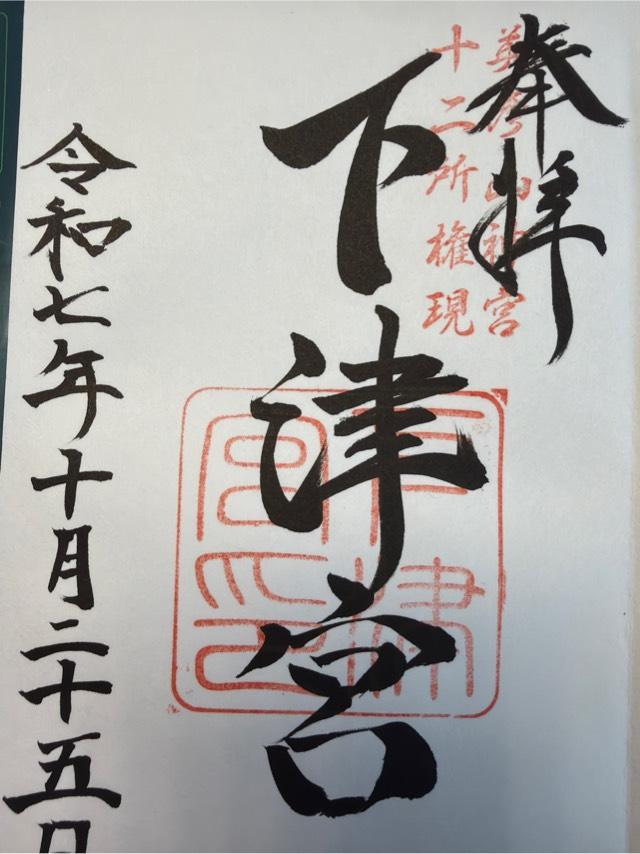 奉拝
英彦山神宮
十二所権現
下津宮
下津宮印
令和七年十月二十五日